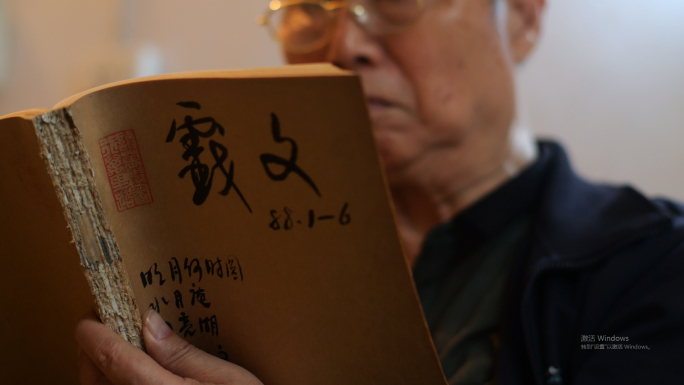 戲文
88.1—6
明月何时圆
水月庵
亮湖
激活 Windows
转到"设置"以激活 Windows。